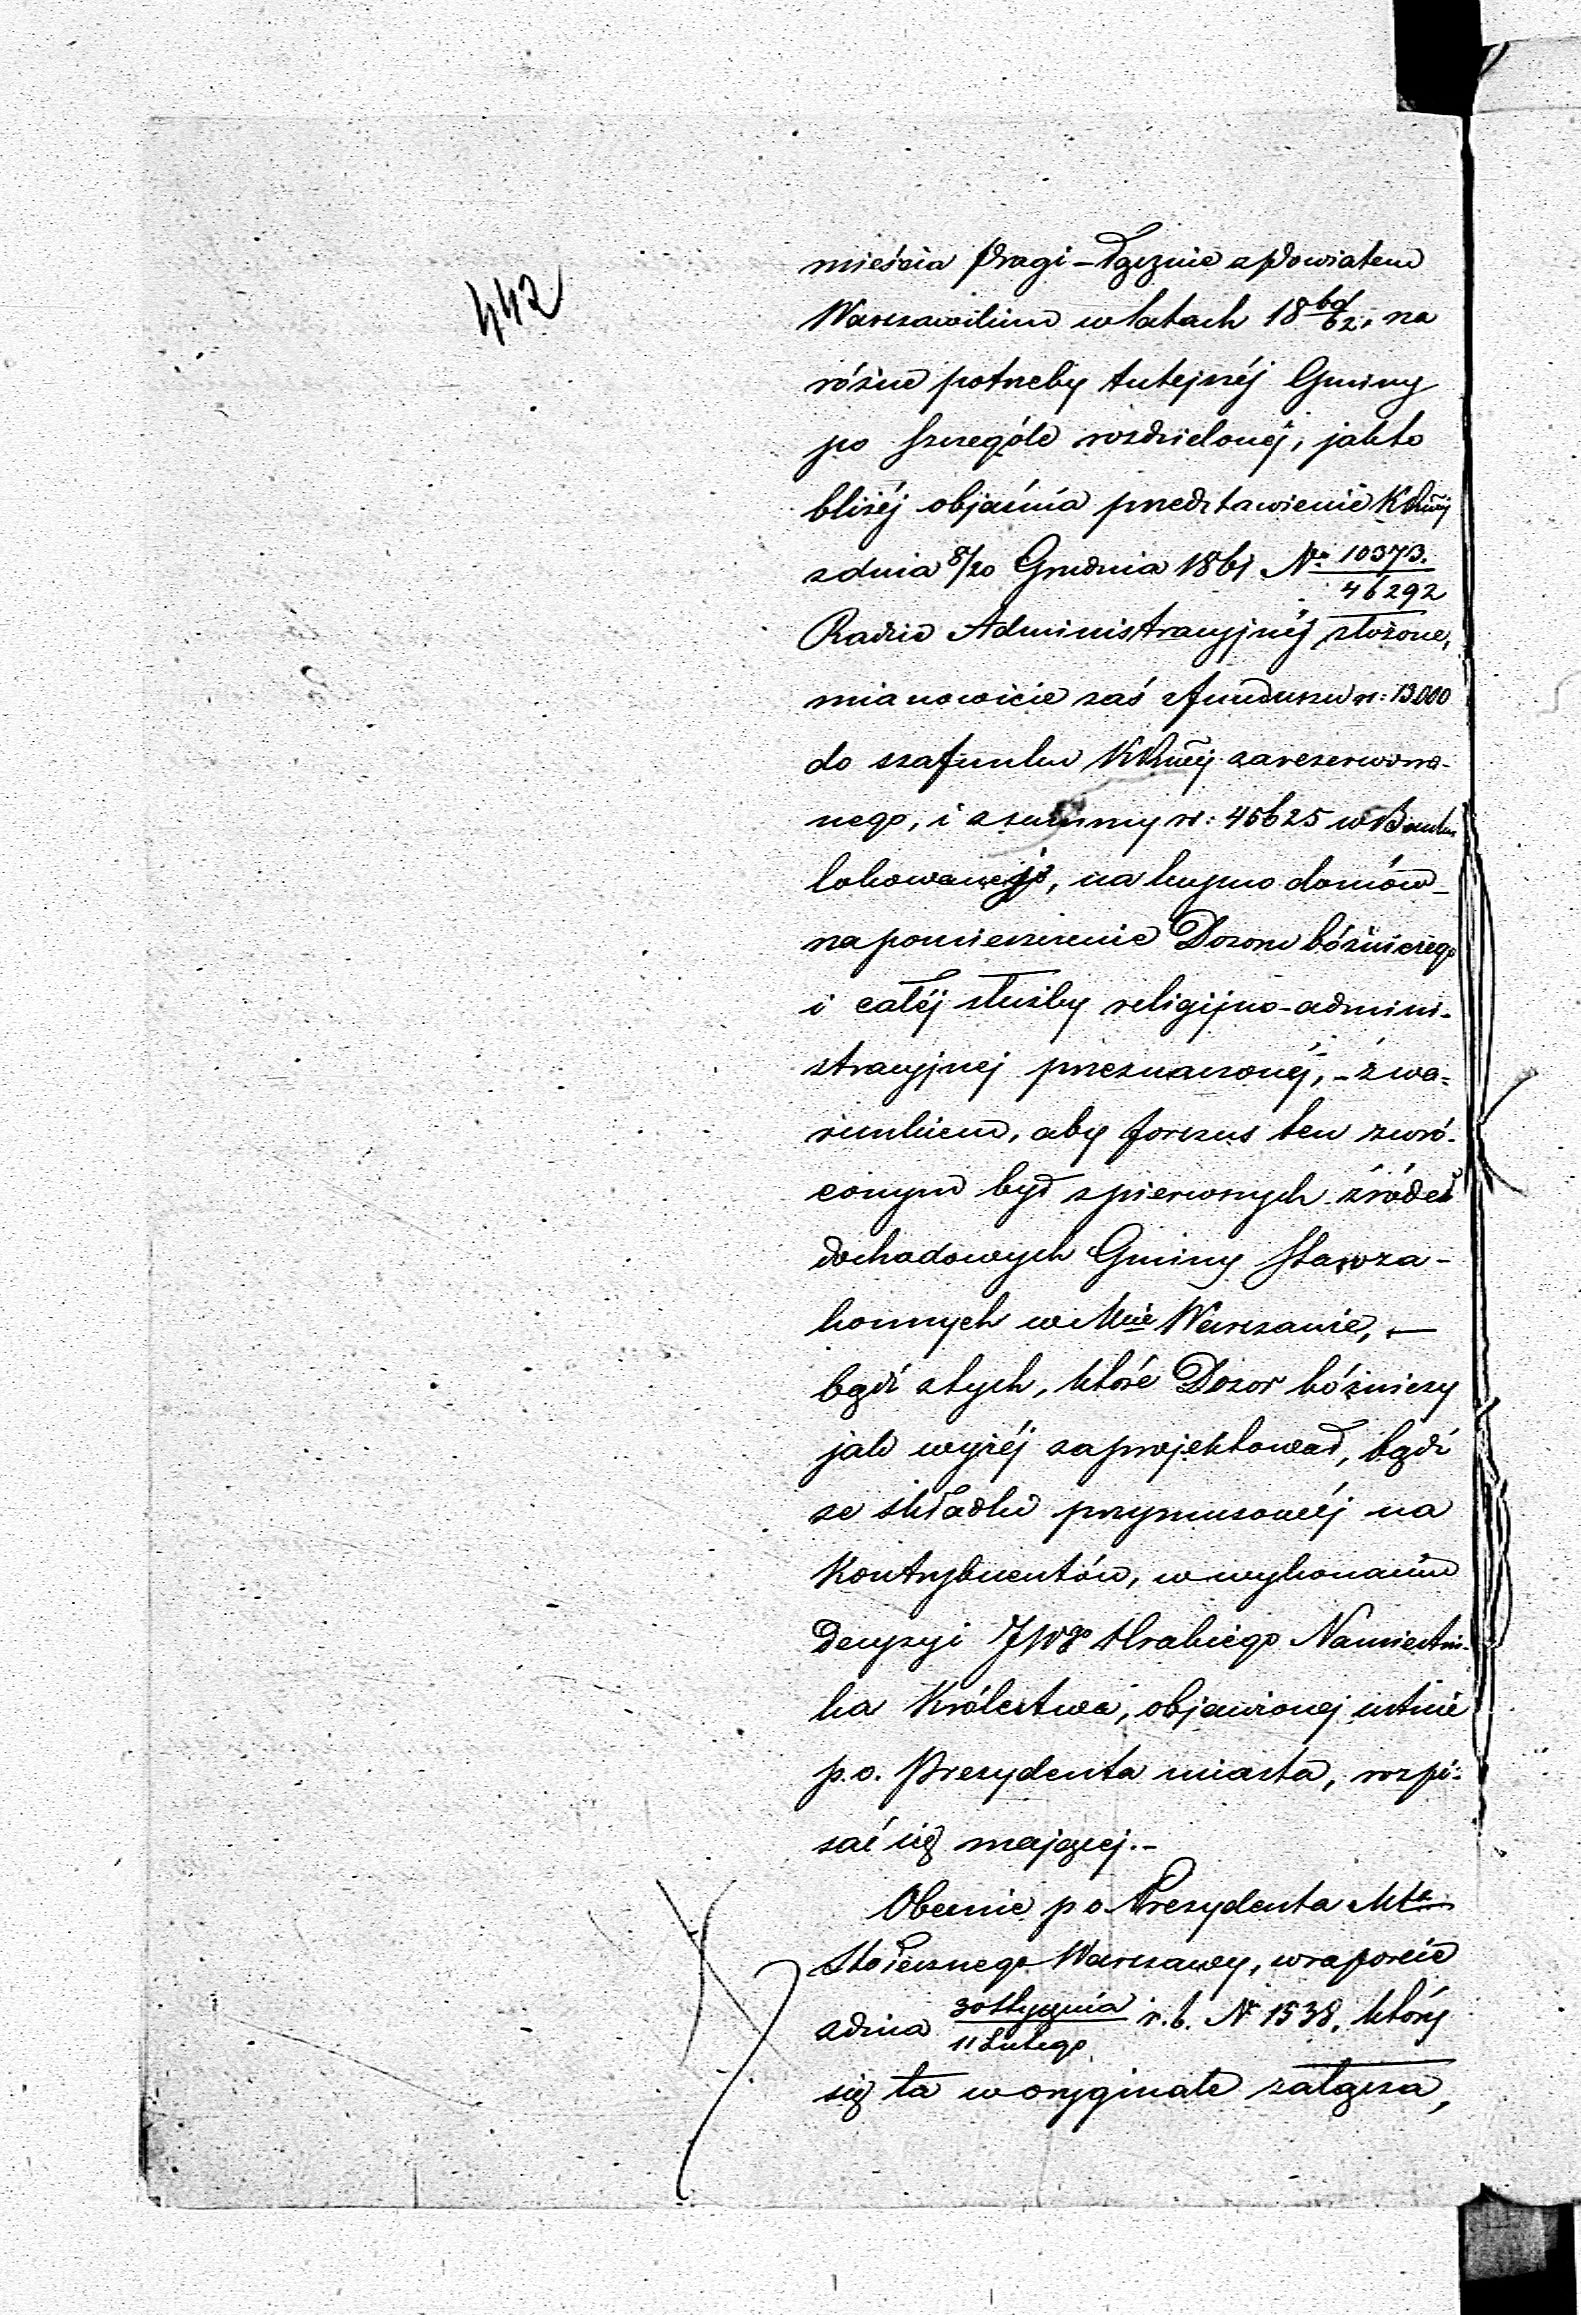 442
mieścia Pragi – łącznie z powiatem
Warszawskim w latach 18 60/62, na
różne potrzeby tutejszéj Gminy
po szczególe rozdzielonéj, jak to
bliżéj objaśnia przedstawienie
z dnia 8/20 Grudnia 1861 No 10373./46292
Radzie Administracyjnéj złożone,
mianowicie zaś z funduszu rs: 13000
do szafunku zarezerwowa-
nego, i z summy rs: 45625 w Banku
lokowanéj, na kupno domów
na pomieszczenie Dozoru bóżniczego
i całéj służby religijno-admini-
stracyjnej przeznaczonéj, – z wa-
runkiem, aby forszus ten zwró-
conym był z pierwszych źródeł
dochodowych Gminy Staroza-
konnych w Mcie Warszawie, —
bądź z tych, które Dozor bóżniczy
jak wyżéj zaprojektował, bądź
ze składki przymusowéj na
Kontrybuentów, w wykonaniu
Decyzyi JWgo Hrabiego Namiestni-
ka Królestwa, objawionej ustnie
p.o. Prezydenta miasta, rozpi-
sać się mającej. –
Obecnie p o Prezydenta Mta
Stołecznego Warszawy, w raporcie
z dnia 30 Stycznia/11 Lutego r. b. No 1538, który
się tu w oryginale załącza,